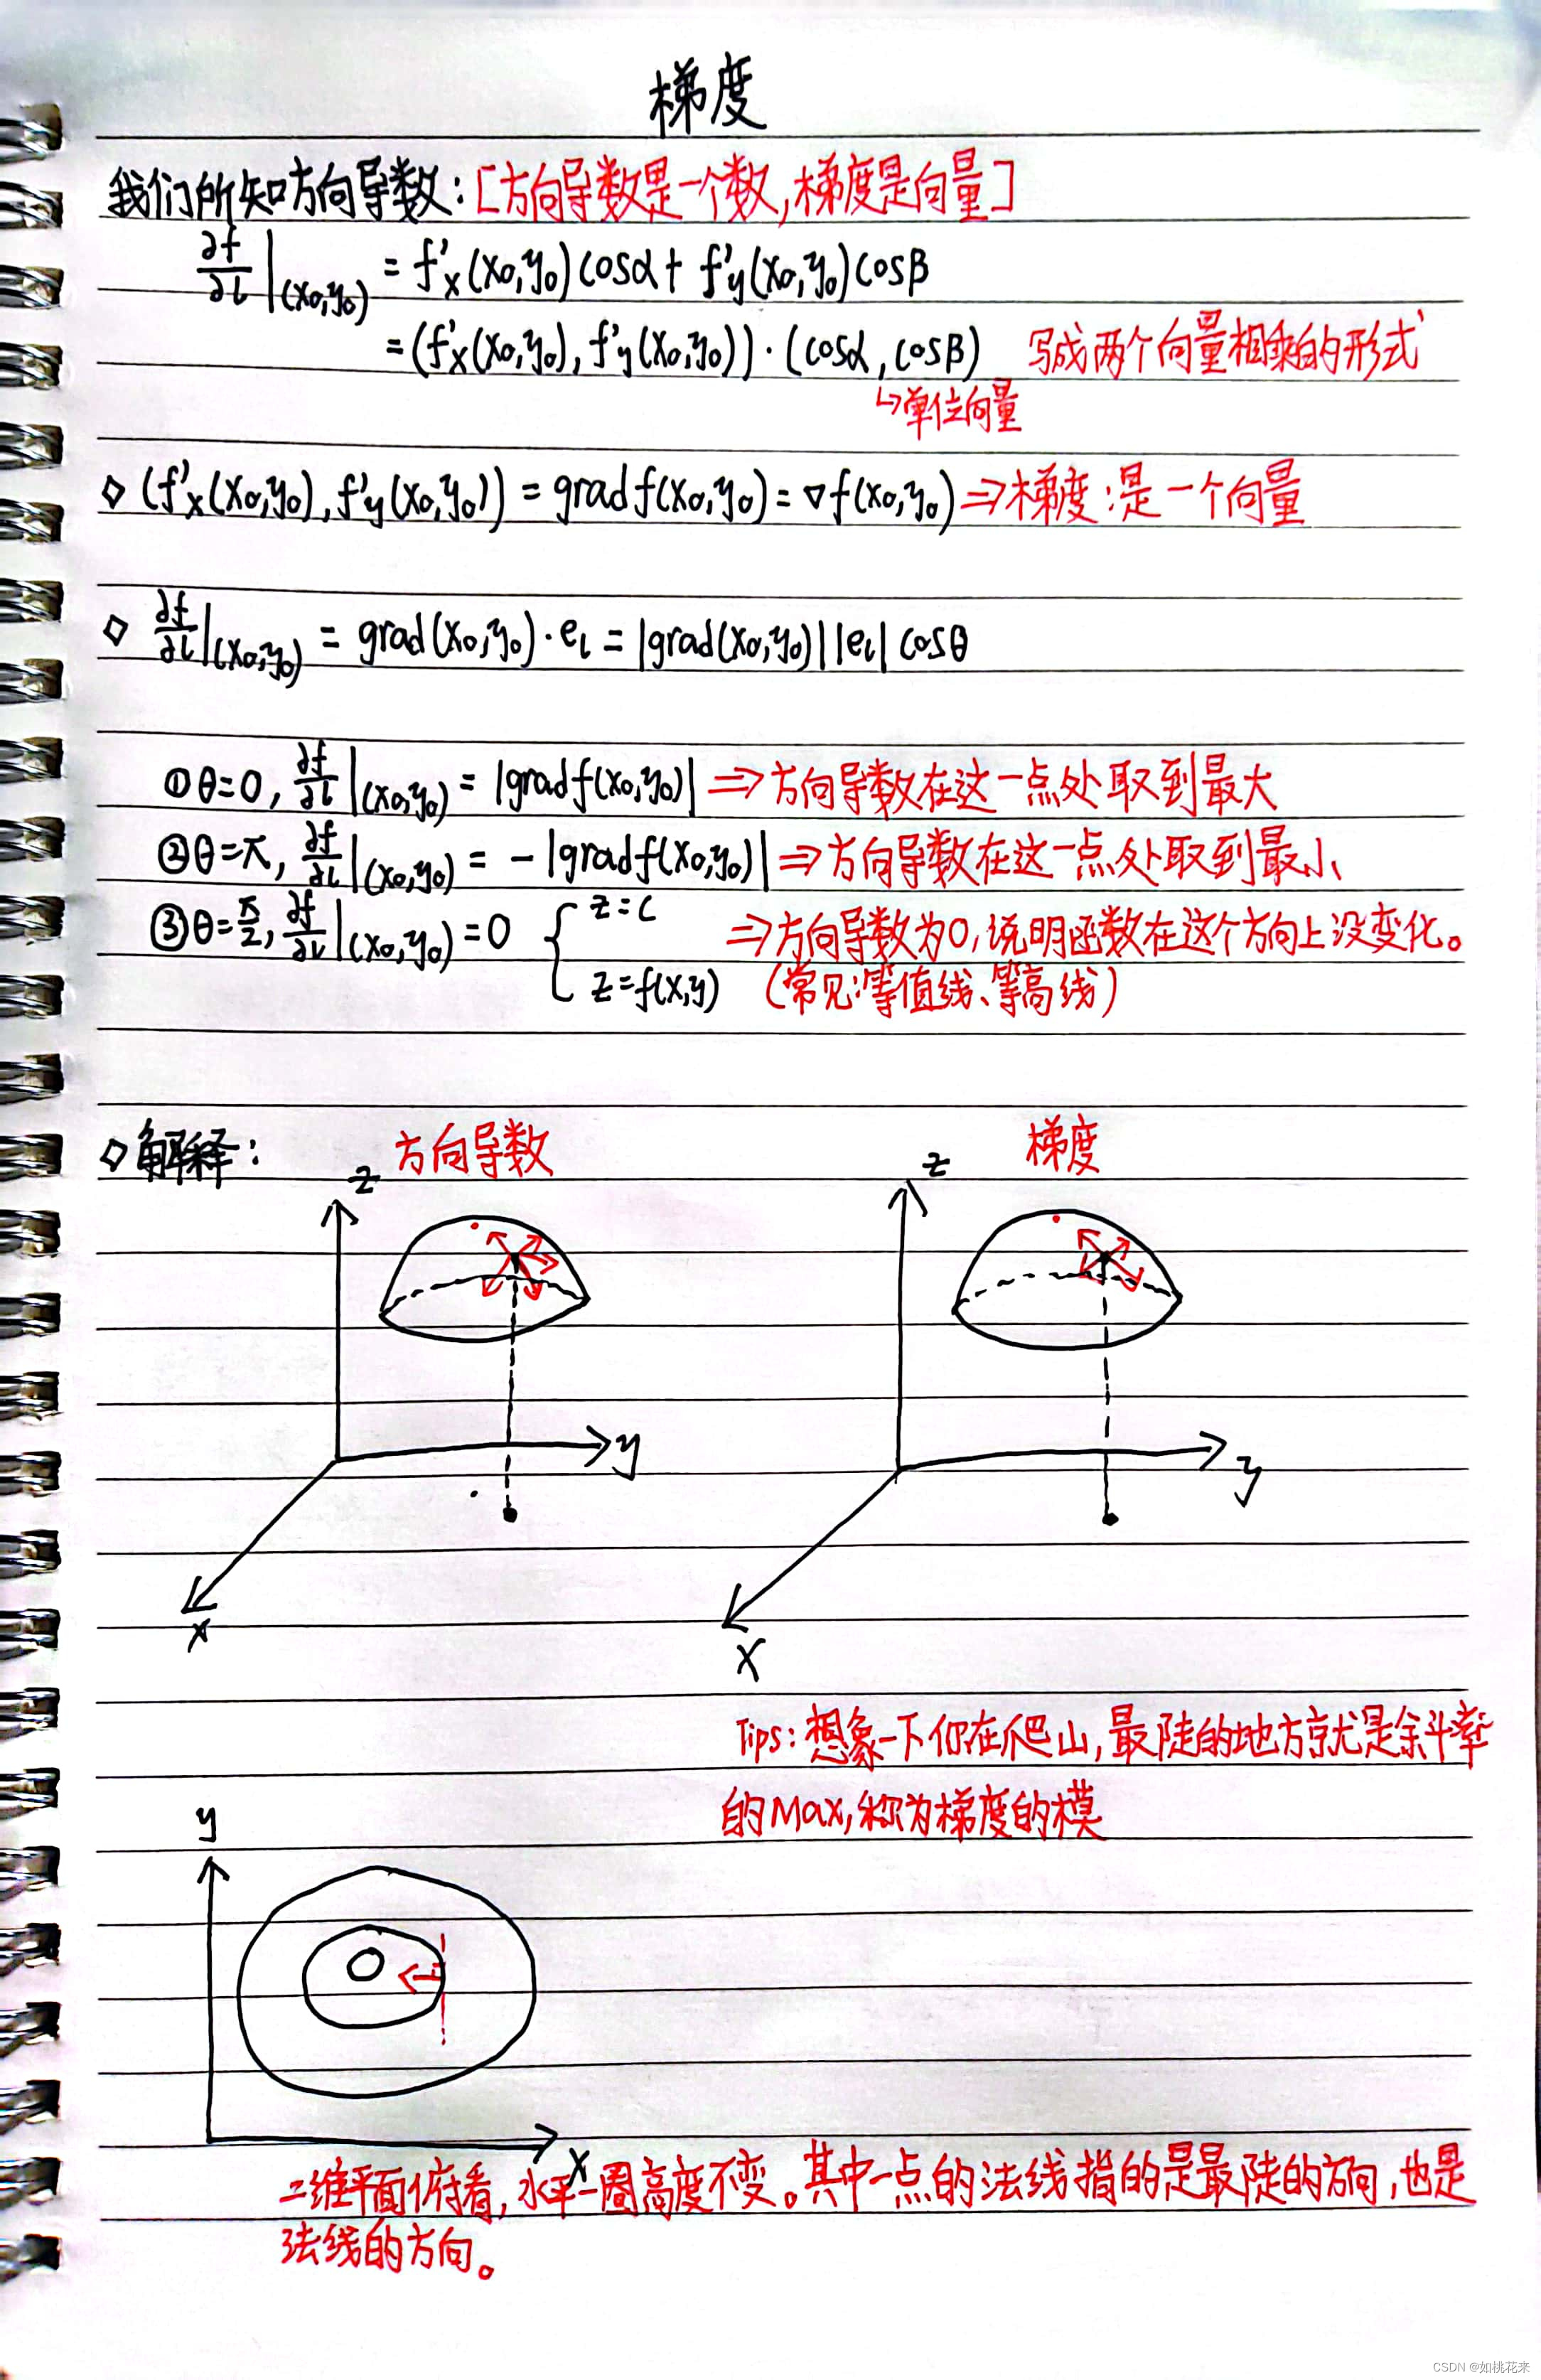 梯度
我们所知方向导数:[方向导数是一个数,梯度是向量]
∂f/∂l|(x₀,y₀) = f'x(x₀,y₀)cosα + f'y(x₀,y₀)cosβ
=(f'x(x₀,y₀), f'y(x₀,y₀))·(cosα, cosβ) 写成两个向量相乘的形式
↳单位向量
◇ (f'x(x₀,y₀), f'y(x₀,y₀)) = grad f(x₀,y₀) = ▽f(x₀,y₀) ⇒梯度:是一个向量
◇ ∂f/∂l|(x₀,y₀) = grad(x₀,y₀)·eₗ = |grad(x₀,y₀)||eₗ|cosθ
①θ=0, ∂f/∂l|(x₀,y₀) = |grad f(x₀,y₀)| ⇒方向导数在这一点处取到最大
②θ=π, ∂f/∂l|(x₀,y₀) = -|grad f(x₀,y₀)| ⇒方向导数在这一点处取到最小
③θ=π/2, ∂f/∂l|(x₀,y₀) = 0 { z=c ⇒方向导数为0,说明函数在这个方向上没变化。
z=f(x,y) (常见:等值线、等高线)
◇解释: 方向导数 梯度
z z
y y
x x
Tips:想象一下你在爬山,最陡的地方就是斜率
的Max,称为梯度的模
y
x
二维平面俯看,水平一圈高度不变。其中一点的法线指的是最陡的方向,也是
法线的方向。
CSDN @如桃花来